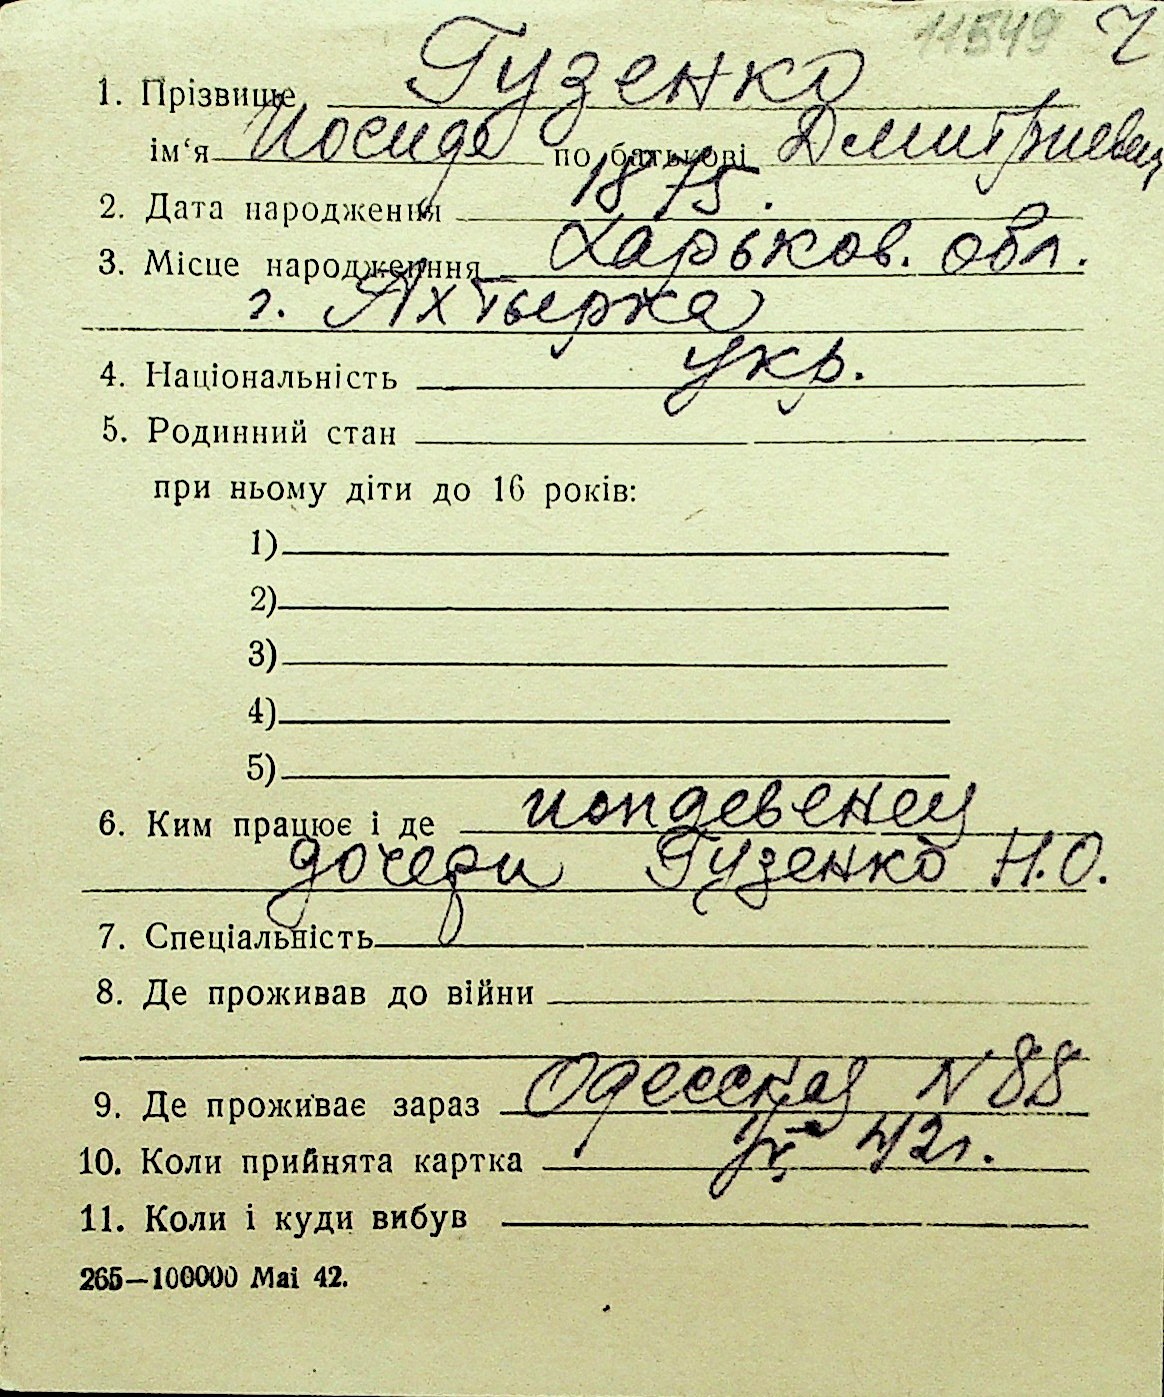 11549 Ч
1. Прізвище Гузенко
ім‘я Иосиф по батькові Дмитриевич
2. Дата народження 1875.
3. Місце народженння Харьков. обл.
г. Ахтырка
4. Національність укр.
5. Родинний стан
при ньому діти до 16 років:
1)
2)
3)
4)
5)
6. Ким працює і де иждевенец
дочери Гузенко Н.О.
7. Спеціальність
8. Де проживав до війни
9. Де проживає зараз Одесская N 88
10. Коли прийнята картка 42г.
11. Коли і куди вибув
265—100000 Mai 42.